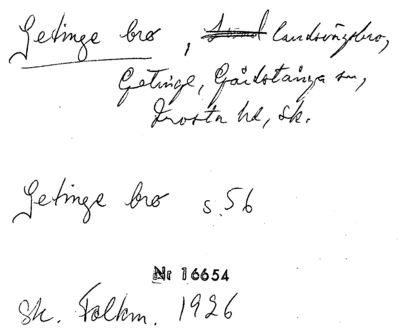 Getinge bro, landsvägsbro,
Getinge, Gårdstånga sn,
Frosta hd, Sk.
Getinge bro s. 56
Nr 16654
Sk. Folkm. 1926